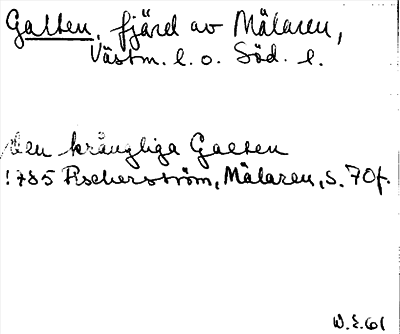 Galten, fjärd av Mälaren,
Västm. l. o. Söd. l.
den krångliga Galten
1785 Fischerström, Mälaren, s. 70f.
W.E.61